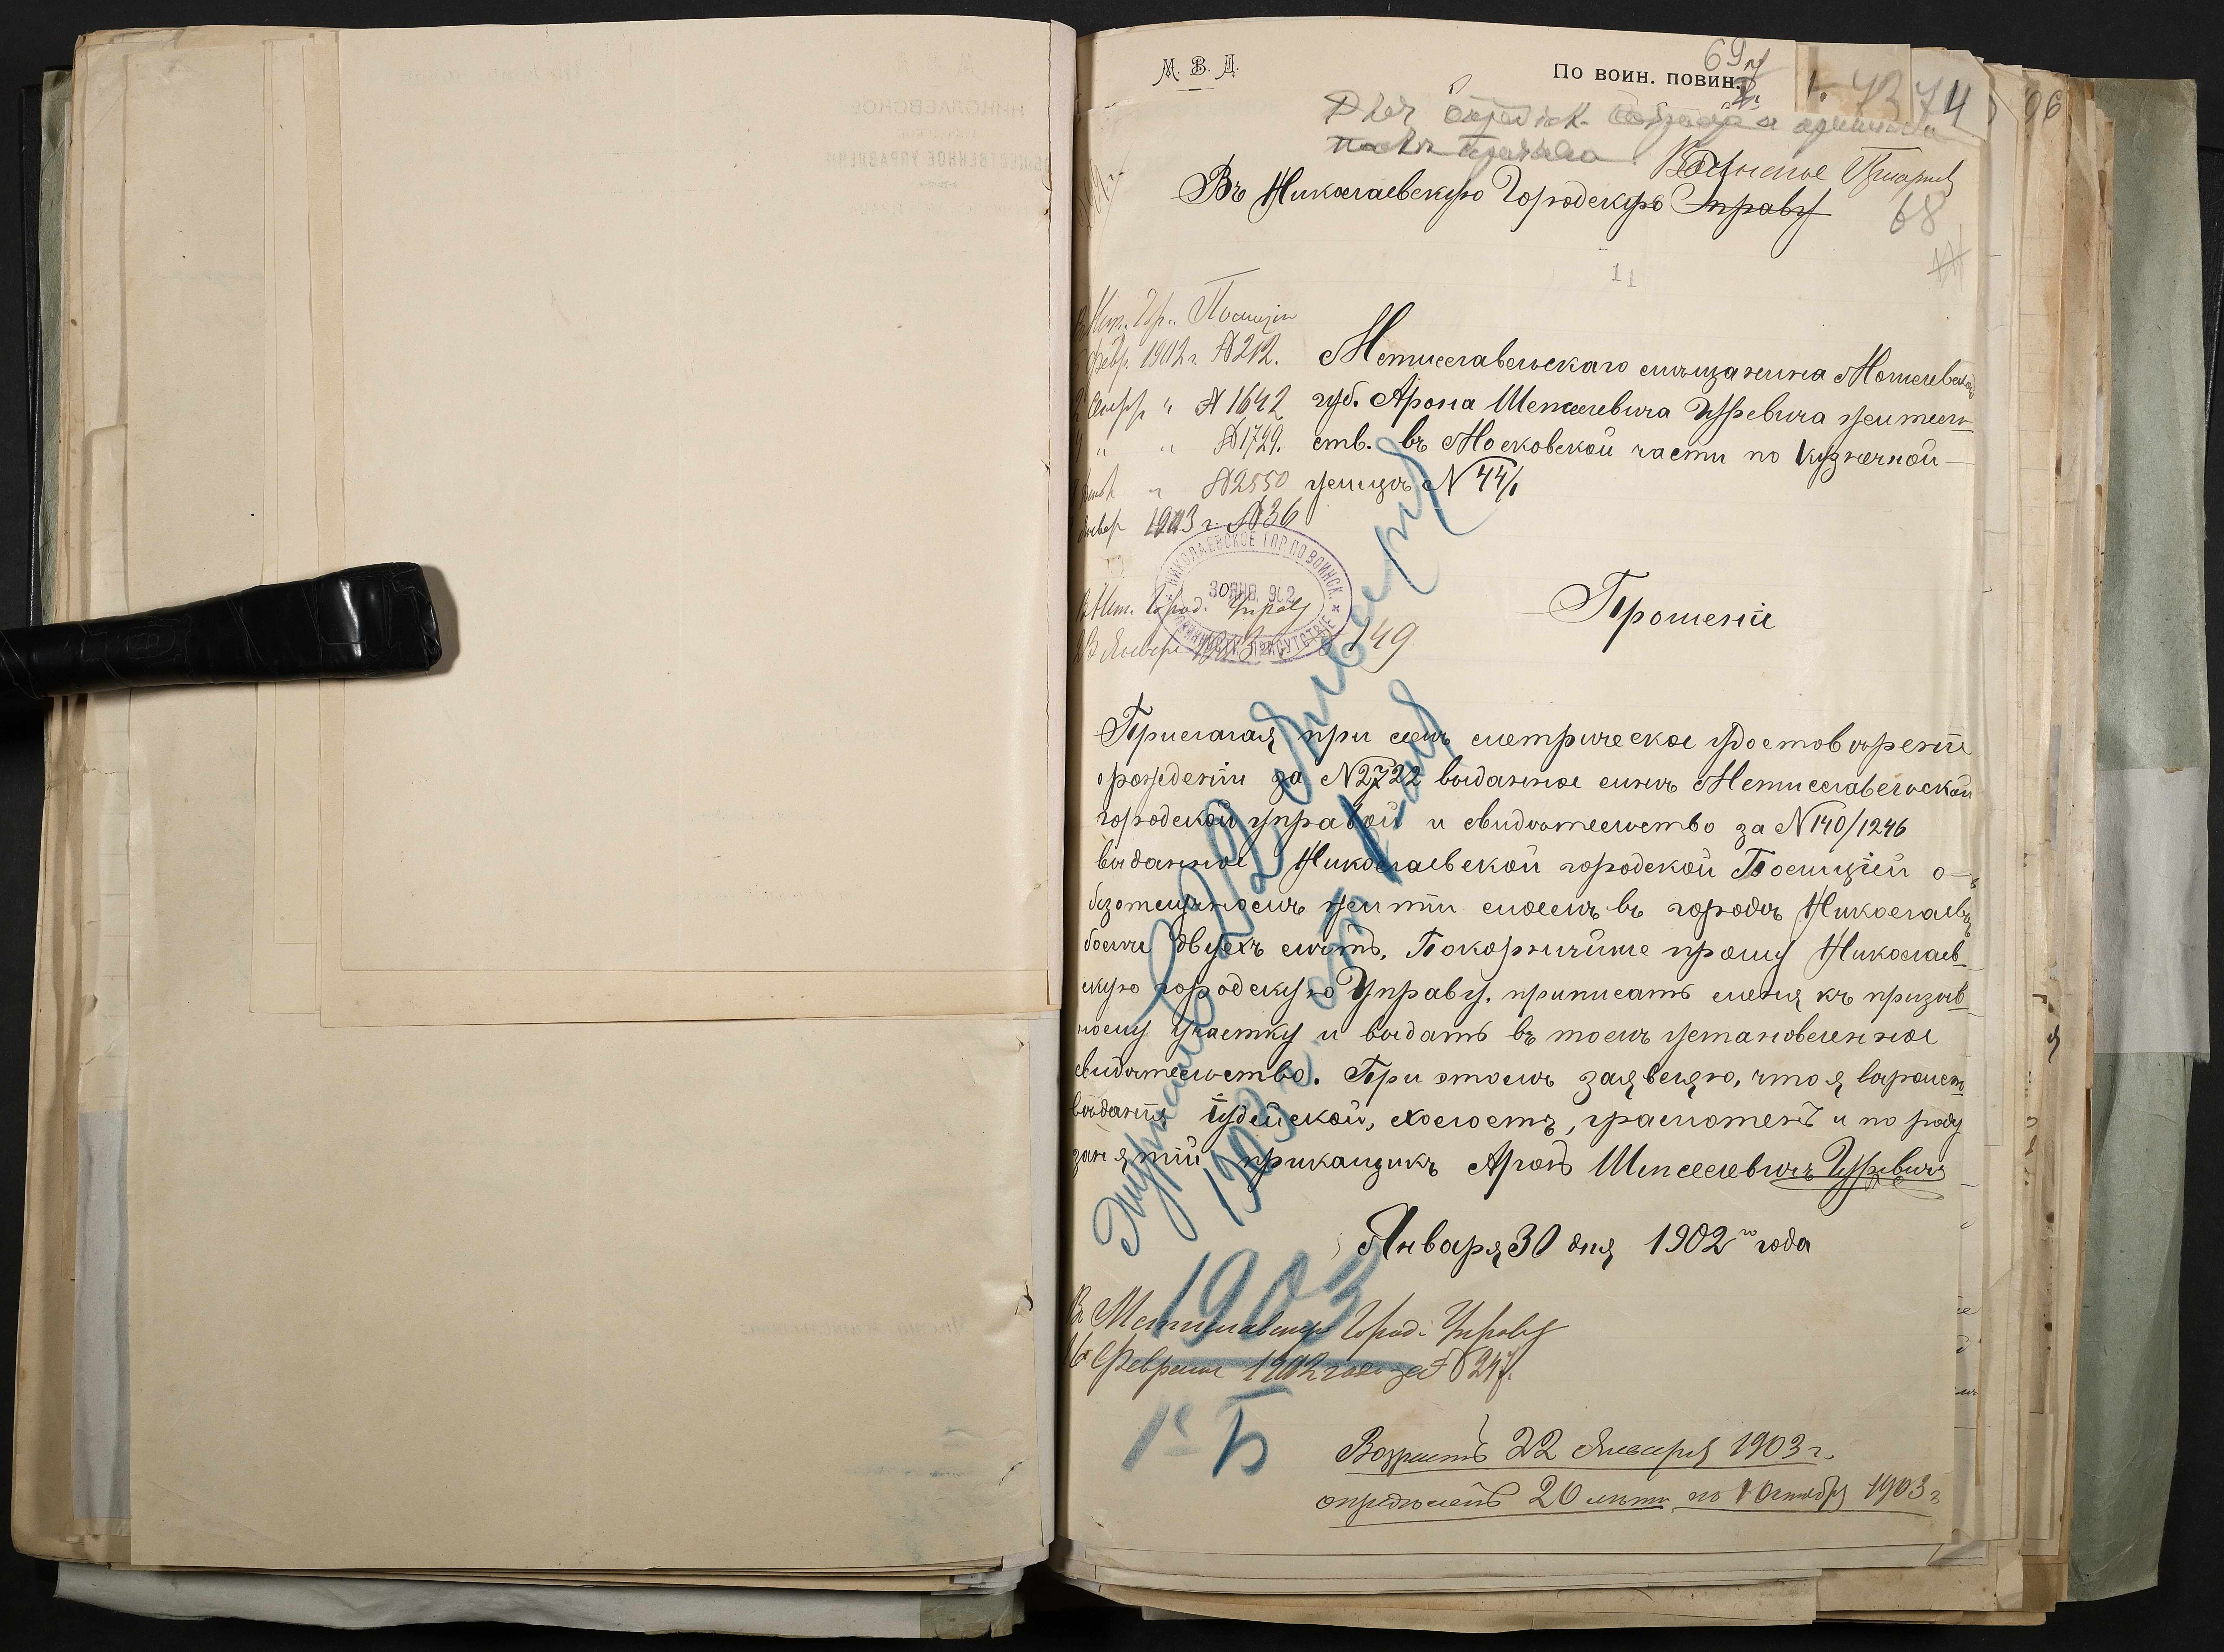 М. В. Д.
По воин. повин.
69
73 74
96
Воинское
Въ Николаевскую Городскую Управу
68
11
Ник. Гор. Полиціи
Февр. 1902 г. № 212.
Апр. " № 1642
" " № 1729.
" № 2550
Январ 1903 г. № 36
Мстиславльскаго мѣщанина Могилевской
губ. Арона Шмеилевича Гуревича жительст-
ств. въ Московской части по Кузнечной
улицѣ N 44/1
НИКОЛАЕВСКОЕ ГОР. ПО ВОИНСК. ПОВИННОСТИ ПРИСУТСТВІЕ
30 ЯНВ. 902
В Ник. Город. Управу
23 Января 1903 № 149
Прошеніе
Прилагая при семъ метрическое удостовѣреніе
о рожденіи за N 2722 выданное мнѣ Мстиславльской
городской управой и свидѣтельство за N 140/1246
выданное Николаевской городской Полиціей о
безотлучномъ житіи моемъ въ городѣ Николаевѣ
болѣе двухъ лѣтъ. Покорнѣйше прошу Николаев-
скую городскую Управу, приписать меня къ призыв-
ному участку и выдать въ томъ установленное
свидѣтельство. При этомъ заявляю, что я вѣроиспо-
вѣданія Іудейской, холостъ, грамотенъ и по роду
занятій прикащикъ Аронъ Шмеилевичъ Гуревичъ
Января 30 дня 1902 го года
1903
В Мстиславскую Город. Управу
16 Февраля 1902 года за № 247.
1903
1е Б
Возрастъ 22 Января 1903 г.
опредѣленъ 20 лѣтъ по 1 Октября 1903 г